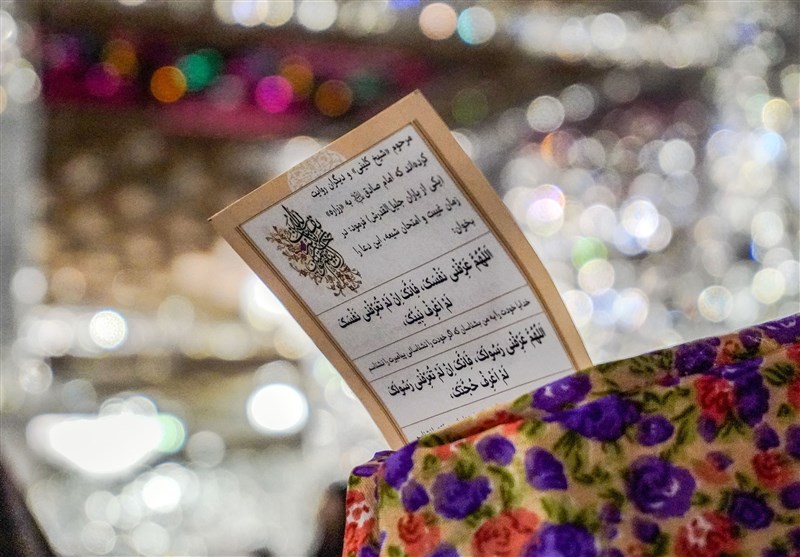 مرحوم «شیخ کلینی» و دیگران روایت
کرده‌اند که امام صادق ﷺ به «زراره»
(یکی از یاران جلیل‌القدرش) فرمود: در
زمان غیبت و امتحان شیعه، این دعا را
بخوان:
اللهُمَّ عَرِّفْنی نَفْسَکَ، فَاِنَّکَ اِنْ لَمْ تُعَرِّفْنی نَفْسَکَ
لَمْ اَعْرِفْ نَبِیَّکَ،
خدایا خودت را به من بشناسان که اگر خودت را نشناسانی پیامبرت را نشناسم
اَللهُمَّ عَرِّفْنی رَسُولَکَ، فَاِنَّکَ اِنْ لَمْ تُعَرِّفْنی رَسُولَکَ
لَمْ اَعْرِفْ حُجَّتَکَ،